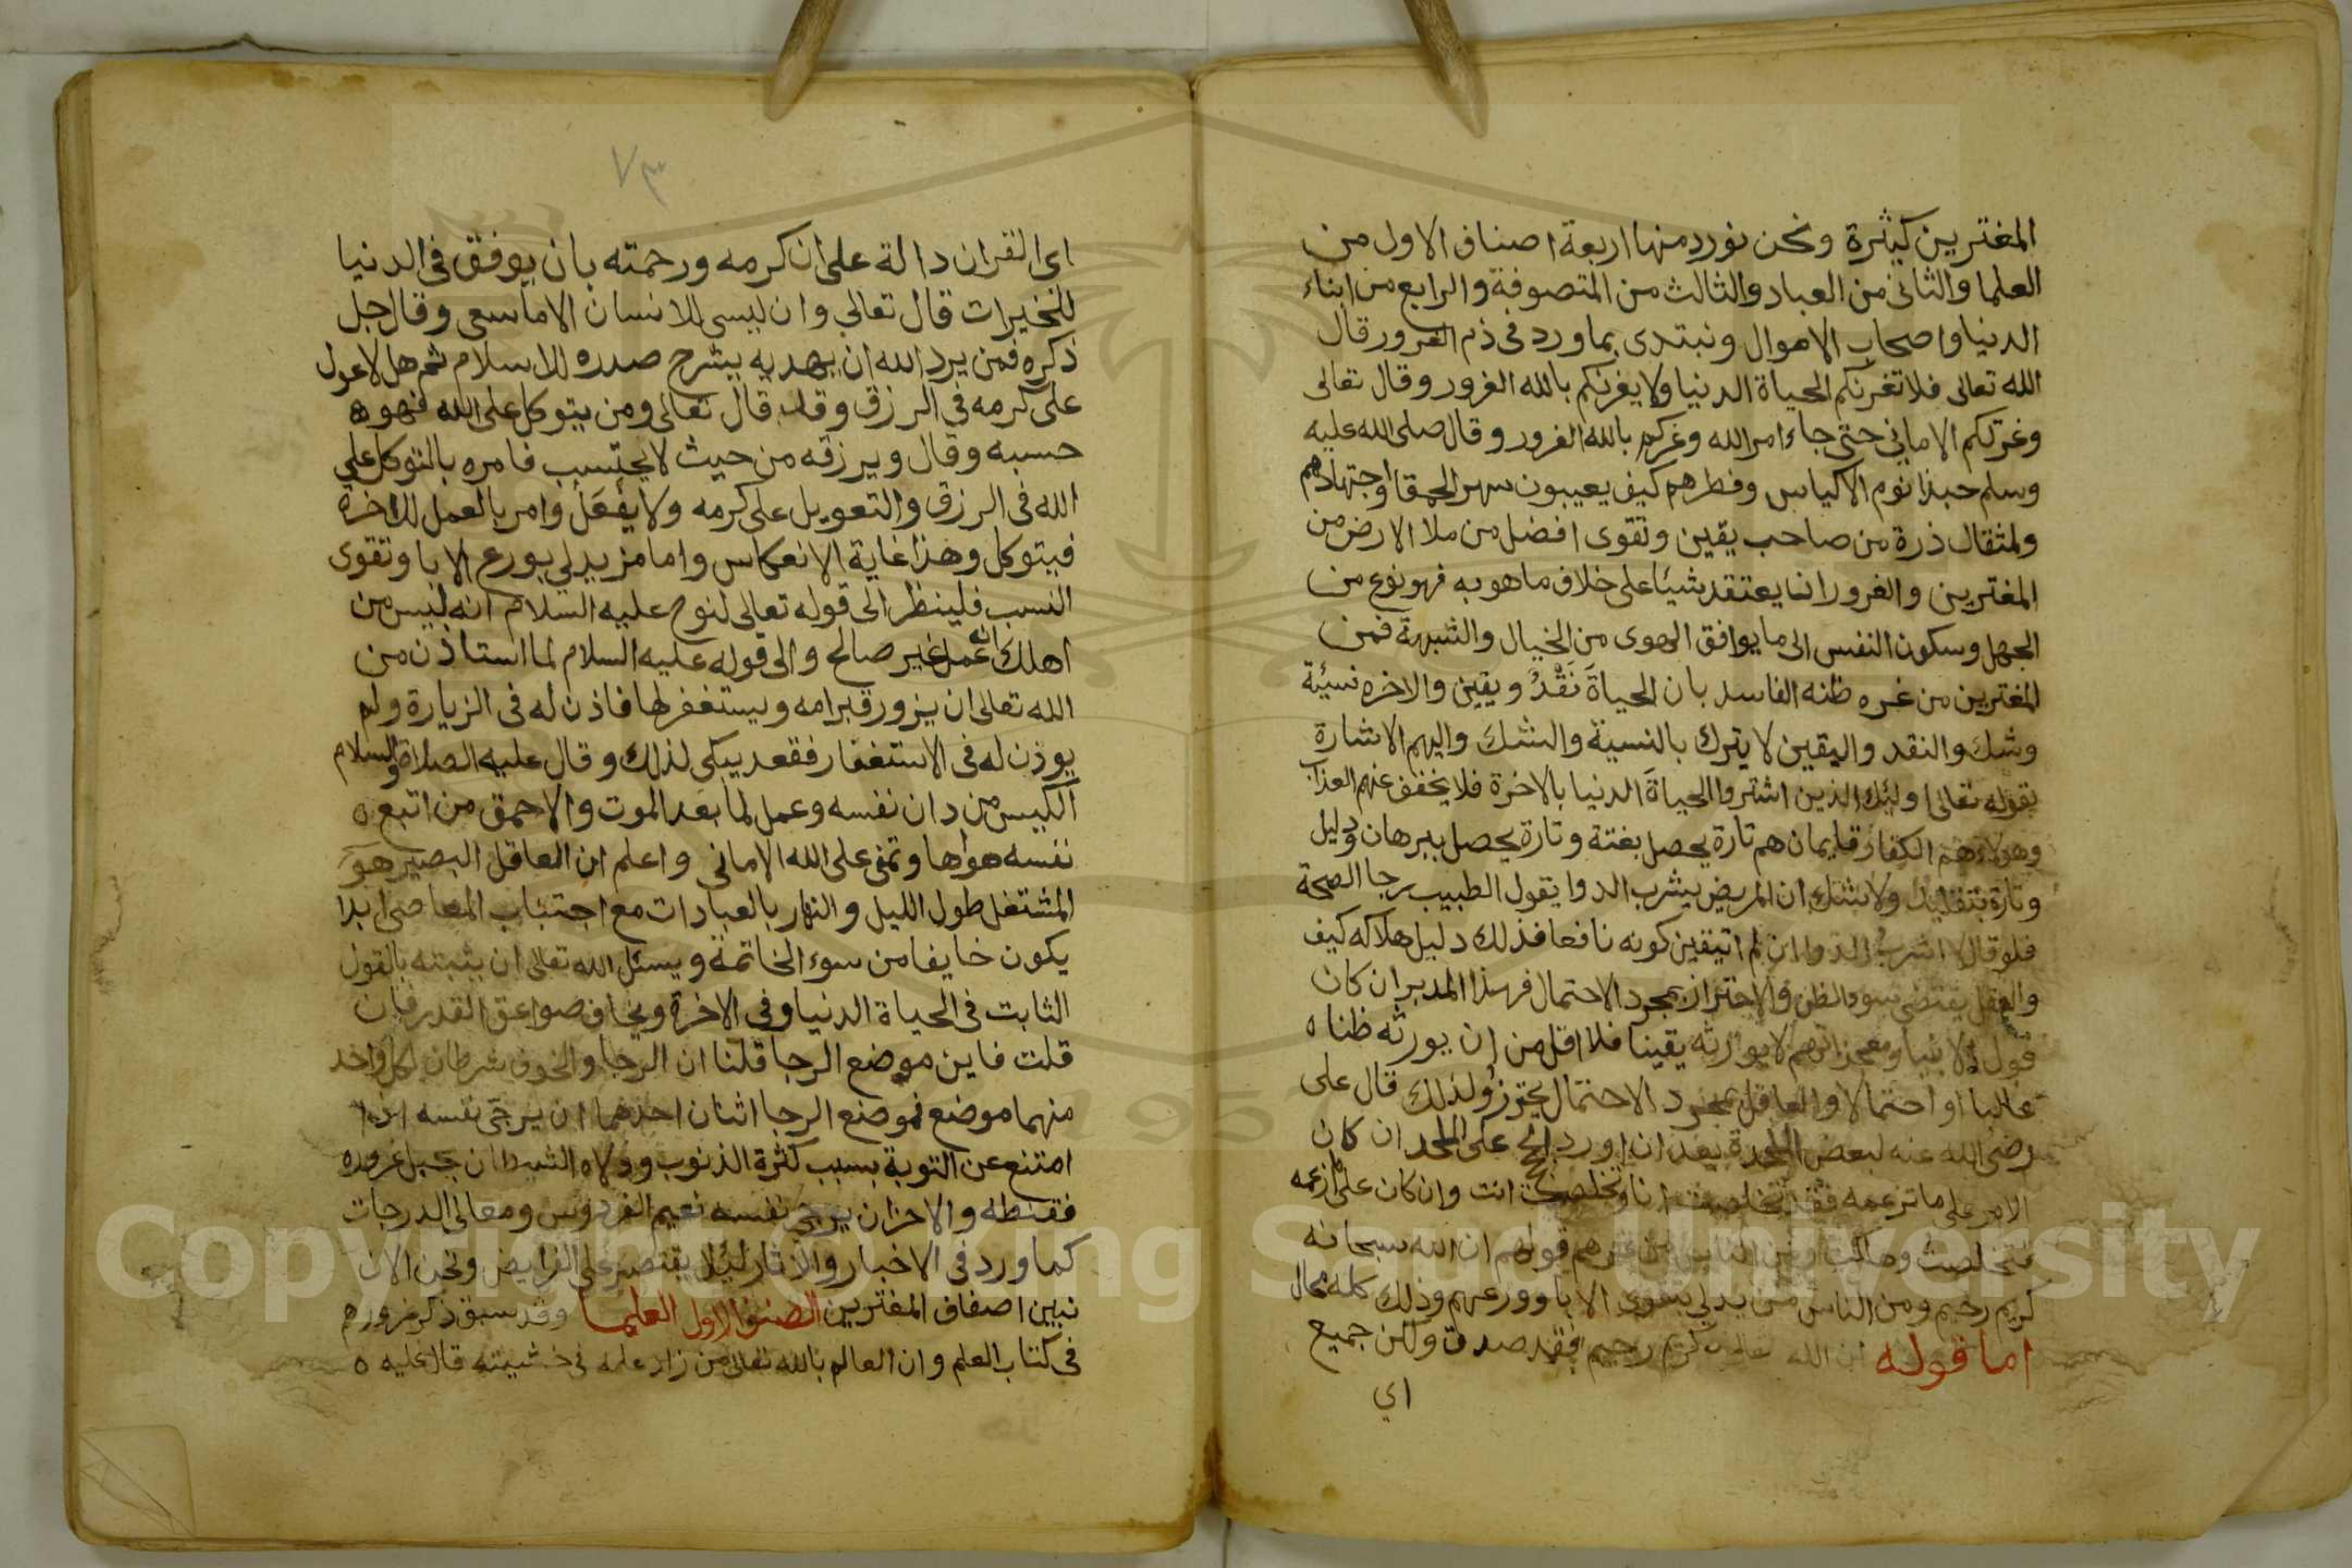 المغترين كثيرة ونحن نورد منها اربعة اصناف الاول من
العلما والثانى من العباد والثالث من المتصوفة والرابع من ابناء
الدنيا واصحاب الاموال ونبتدى بما ورد فى ذم الغرور قال
الله تعالى فلا تغرنكم الحياة الدنيا ولا يغرنكم بالله الغرور وقال تعالى
وغرتكم الامانى حتى جاء امر الله وغركم بالله الغرور وقال صلى الله عليه
وسلم حبذا نوم الاكياس وفطرهم كيف يعيبون سهر الحمقا واجتهادهم
ولمثقال ذرة من صاحب يقين وتقوى افضل من ملا الارض من
المغترين والغرور انما يعتقد شيئا على خلاف ما هو به فهو نوع من
الجهل وسكون النفس الى ما يوافق الهوى من الخيال والشبهة فمن
المغترين من غره ظنه الفاسد بان الحياةَ نَقْدُ ويقين والاخره نسيئة
وشك والنقد واليقين لا يترك بالنسية والشك واليهم الاشارة
بقوله تعالى اوليك الذين اشتروا الحياةَ الدنيا بالاخرة فلا يخفف عنهم العذاب
وهولاء هم الكفار فايمان هم تارة يحصل بغتة وتارة يحصل ببرهان ودليل
وتارة بتقليد ولا شك ان المريض يشرب الدوا يقول الطبيب رجا الصحة
فلو قال لا اشرب الدوا ان لم اتيقين كونه نافعا فذلك دليل هلاكه كيف
والعقل يقتضى سوء الظن والاحتراز بمجرد الاحتمال فهذا المدبر ان كان
قول الانبيا ومعجزاتهم لا يورثه يقينا فلا اقل من ان يورثه ظنا ه
غالبا او احتمالا والعاقل بمجرد الاحتمال يحترزُ ولذلك قال على
رضى الله عنه لبعض الملحدة بعد ان اورد الحج على الملحد ان كان
الامر على ما تزعمه فقد تخلصت انا وتخلصت انت وان كان على ما ازعمه
تخلصت وهلكت ومن الناس من غرهم قولهم ان الله سبحانه
كريم رحيم ومن الناس من يدلي بتقوى الابا وورعهم وذلك كله محال
اما قوله ان الله كريم رحيم فقد صدق ولكن جميع
اي
٧٣
اى القران دالة على ان كرمه ورحمته بان يوفق فى الدنيا
للخيرات قال تعالى وان ليس للانسان الا ما سعى وقال جل
ذكره فمن يرد الله ان يهديه يشرح صدره للاسلام ثم هلا عول
على كرمه فى الرزق وقد قال تعالى ومن يتوكل على الله فهو ه
حسبه وقال ويرزقه من حيث لا يحتسب فامره بالتوكل على
الله فى الرزق والتعويل على كرمه ولا يفْعَلْ وامر بالعمل للاخرة
فيتوكل وهذا غاية الانعكاس واما من يدلي بورع الابا وتقوى
النسب فلينظر الى قوله تعالى لنوح عليه السلام انه ليس من
اهلك انه عمل غير صالح والى قوله عليه السلام لما استاذن من
الله تعالى ان يزور قبر امه ويستغفر لها فاذن له فى الزيارة ولم
يوذن له فى الاستغفار فقعد يبكى لذلك وقال عليه الصلاة والسلام
الكيس من دان نفسه وعمل لما بعد الموت والاحمق من اتبع ه
نفسه هواها وتمنى على الله الامانى واعلم ان العاقل البصير هو
المشتغل طول الليل والنهار بالعبادات مع اجتناب المعاصى ابدا
يكون خايفا من سوء الخاتمة ويسئل الله تعالى ان يثبته بالقول
الثابت فى الحياة الدنيا وفى الاخرة ويخاف صواعق القدر فان
قلت فاين موضع الرجا قلنا ان الرجا والخوف شرطان لكل واحد
منهما موضع فموضع الرجا اثنان احدهما ان يرجى نفسه اذا
امتنع عن التوبة بسبب كثرة الذنوب وولاه الشيطان بحبل غروره
فقنطه والاخر ان يرجى نفسه نعيم الفردوس ومعالى الدرجات
كما ورد فى الاخبار والاثار ليلا يقتصر على الفرايض ونحن الان
نبين اصفاف المغترين الصنف الاول العلما وقد سبق ذكر غرورهم
فى كتاب العلم وان العالم بالله تعالى من زاد علمه فى خشيته قال عليه ه
Copyright © King Saud University
1957